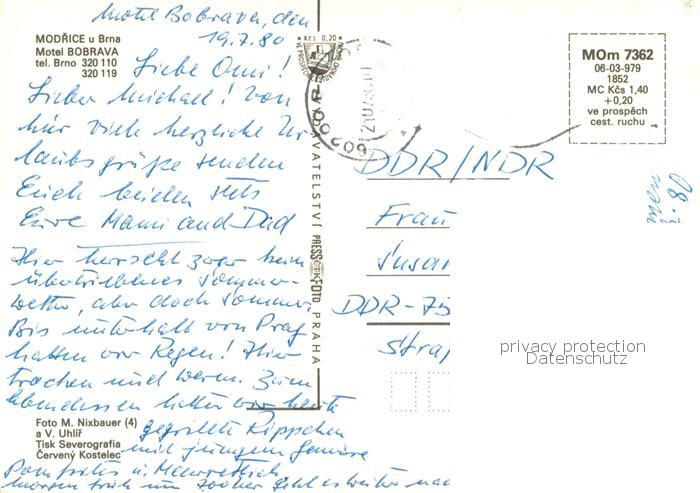 Motel Bobrava, den
19.7.80
MODŘICE u Brna
Motel BOBRAVA
tel. Brno 320 110
320 119
Liebe Omi!
Lieber Michael! Von
hier viele herzliche Ur-
laubsgrüße senden
Euch beiden stets
Eure Mami and Dad
Hier herrscht zwar kein
übertriebenes Sommer-
wetter, aber doch Sommer.
Bis unterhalb von Prag
hatten wir Regen! Hier
trocken und warm. Zum
Abendessen hatten wir heute
gegrillte Rippchen
mit jungem Gemüse
Pomfrites u. Meerrettich
morgen früh um geht es weiter nach
Foto M. Nixbauer (4)
a V. Uhlíř
Tisk Severografia
Červený Kostelec
Kčs 0,20
VE PROSPĚCH CESTOVNÍHO RUCHU
VYDAVATELSTVÍ PRESSFOTO PRAHA
MOm 7362
06-03-979
1852
MC Kčs 1,40
+0,20
ve prospěch
cest. ruchu
DDR/NDR
Frau
Susan
DDR-75
Straß
privacy protection
Datenschutz